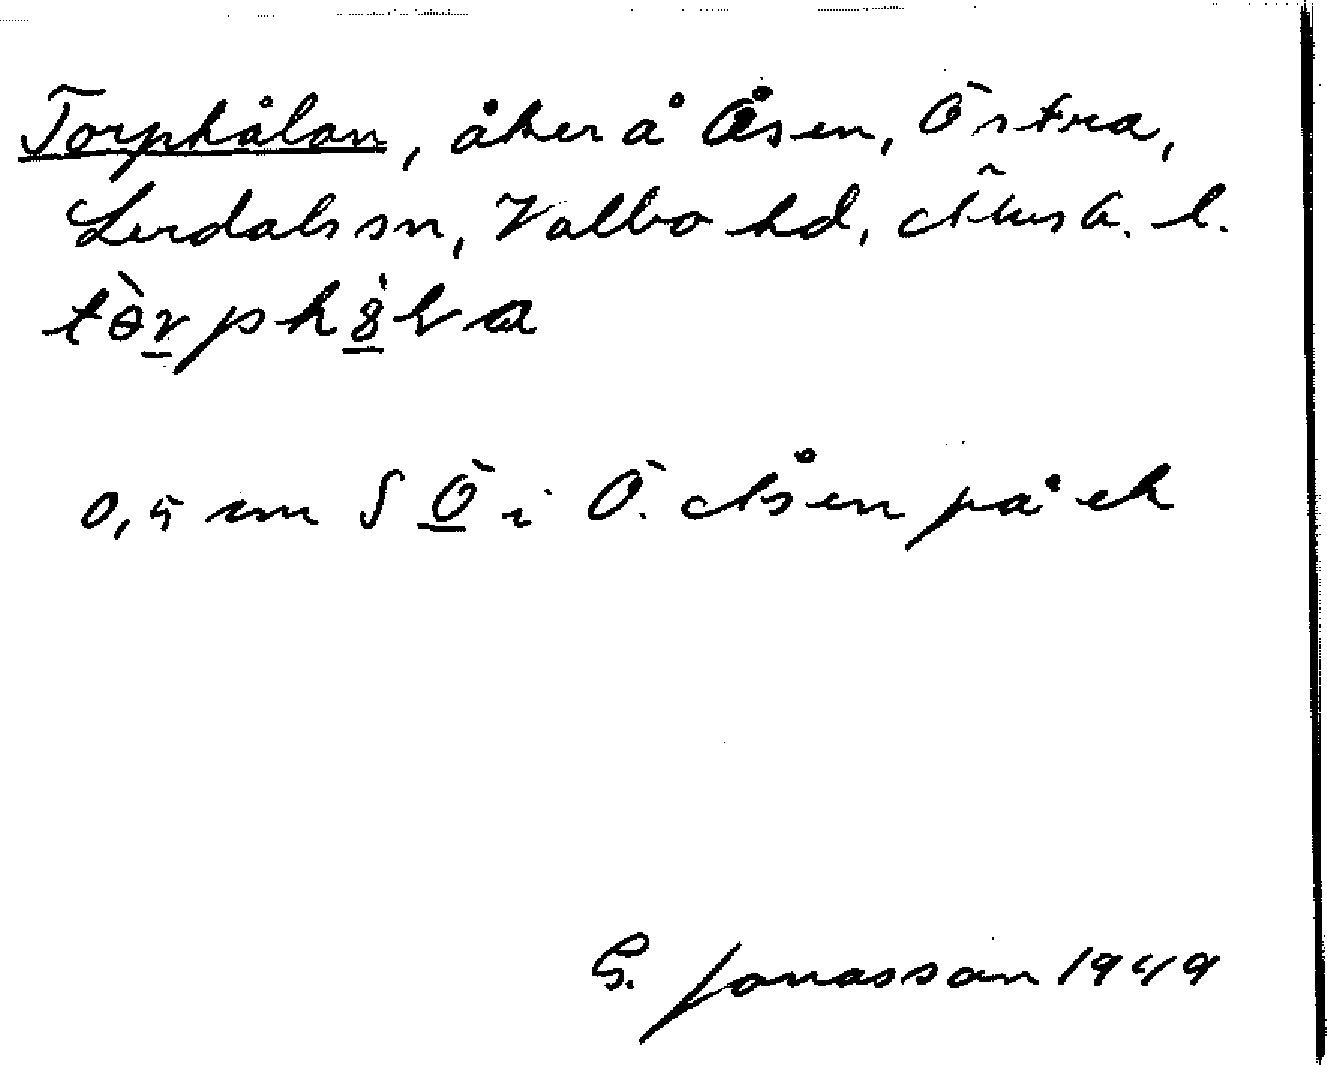 Torphålan, åker å Åsen, Östra,
Lerdals sn, Valbo hd, Älvsb. l.
0,5 cm S Ö i Ö. Åsen på ek
G. Jonasson 1949